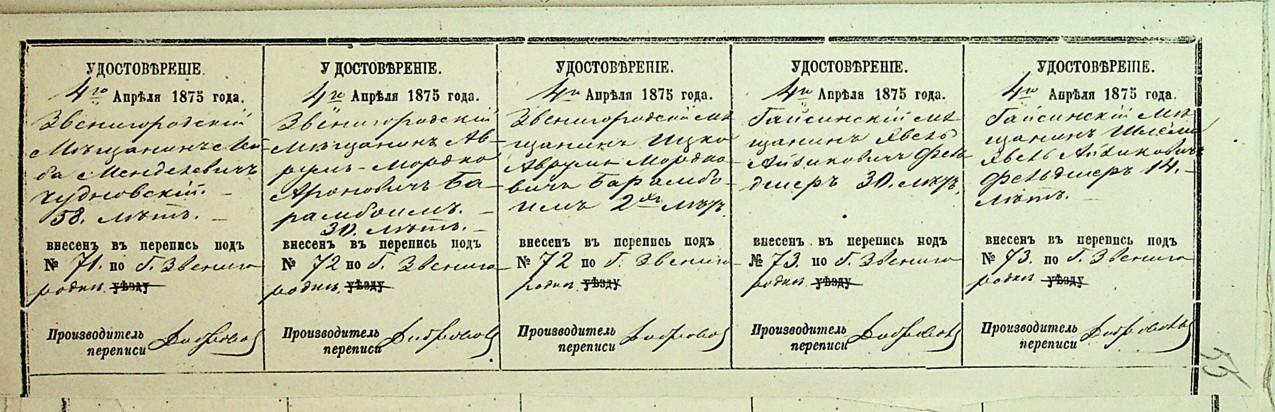 УДОСТОВѢРЕНІЕ.
4го Апрѣля 1875 года.
Звенигородскій
Мѣщанинъ
ба Менделевичъ
Чудновскій —
58. лѣтъ. —
внесенъ въ перепись подъ
№ 71. по г. Звениго
родки уѣзду
Производитель
переписи
УДОСТОВѢРЕНІЕ.
4го Апрѣля 1875 года.
Звенигородскій
Мѣщанинъ Ав-
румъ-Мордко
Ароновичъ Ба-
рамбоимъ. —
30. лѣтъ. —
внесенъ въ перепись подъ
№ 72 по г. Звениго
родки уѣзду
Производитель
переписи
УДОСТОВѢРЕНІЕ.
4го Апрѣля 1875 года.
Звенигородскій мѣ
щанинъ Ицко
Аврумъ Мордко
вичъ Барамбо
имъ 2хъ лѣтъ
внесенъ въ перепись подъ
№ 72 по г. Звениго
родки уѣзду
Производитель
переписи
УДОСТОВѢРЕНІЕ.
4го Апрѣля 1875 года.
Гайсинскій мѣ
щанинъ Явель
Айзиковичъ Фель
дшеръ 30. лѣтъ
внесенъ въ перепись подъ
№ 73. по г. Звениго
родки уѣзду
Производитель
переписи
УДОСТОВѢРЕНІЕ.
4го Апрѣля 1875 года.
Гайсинскій мѣ
щанинъ Шлема
Явель Айзиковичъ
Фельдшеръ 14. —
лѣтъ.
внесенъ въ перепись подъ
№ 73. по г. Звениго
родки уѣзду
Производитель
переписи
55